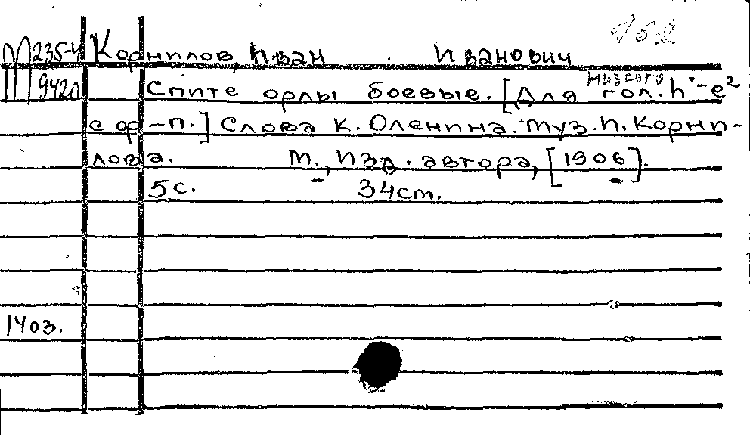 952
М 235-4 Корнилов, Иван Иванович
942л Спите орлы боевые. [Для низкого гол. h·-e²
с ф-п.] Слова К. Оленина. Муз. И. Корни-
лова. М., Изд. автора, [1906].
5с. 34cm.
14оз.